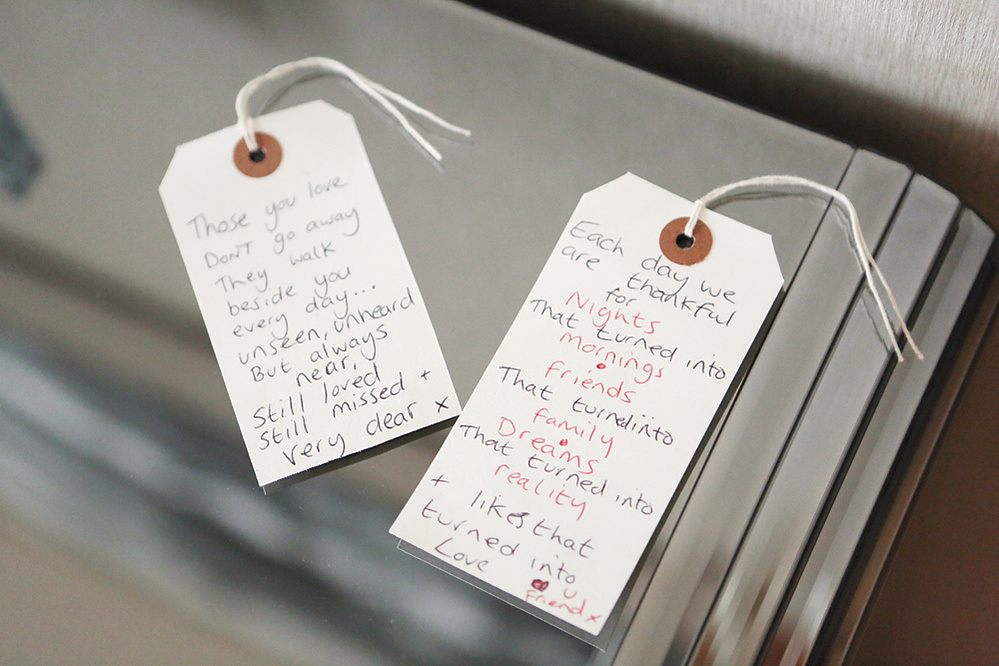 Those you love
DON'T go away
They walk
beside you
every day...
unseen, unheard
But always
near,
Still loved
Still missed +
very dear x
Each day we
are thankful
for
Nights
That turned into
mornings
friends
That turned into
family
Dreams
That turned into
reality
+ likes that
turned into
Love
Friend x